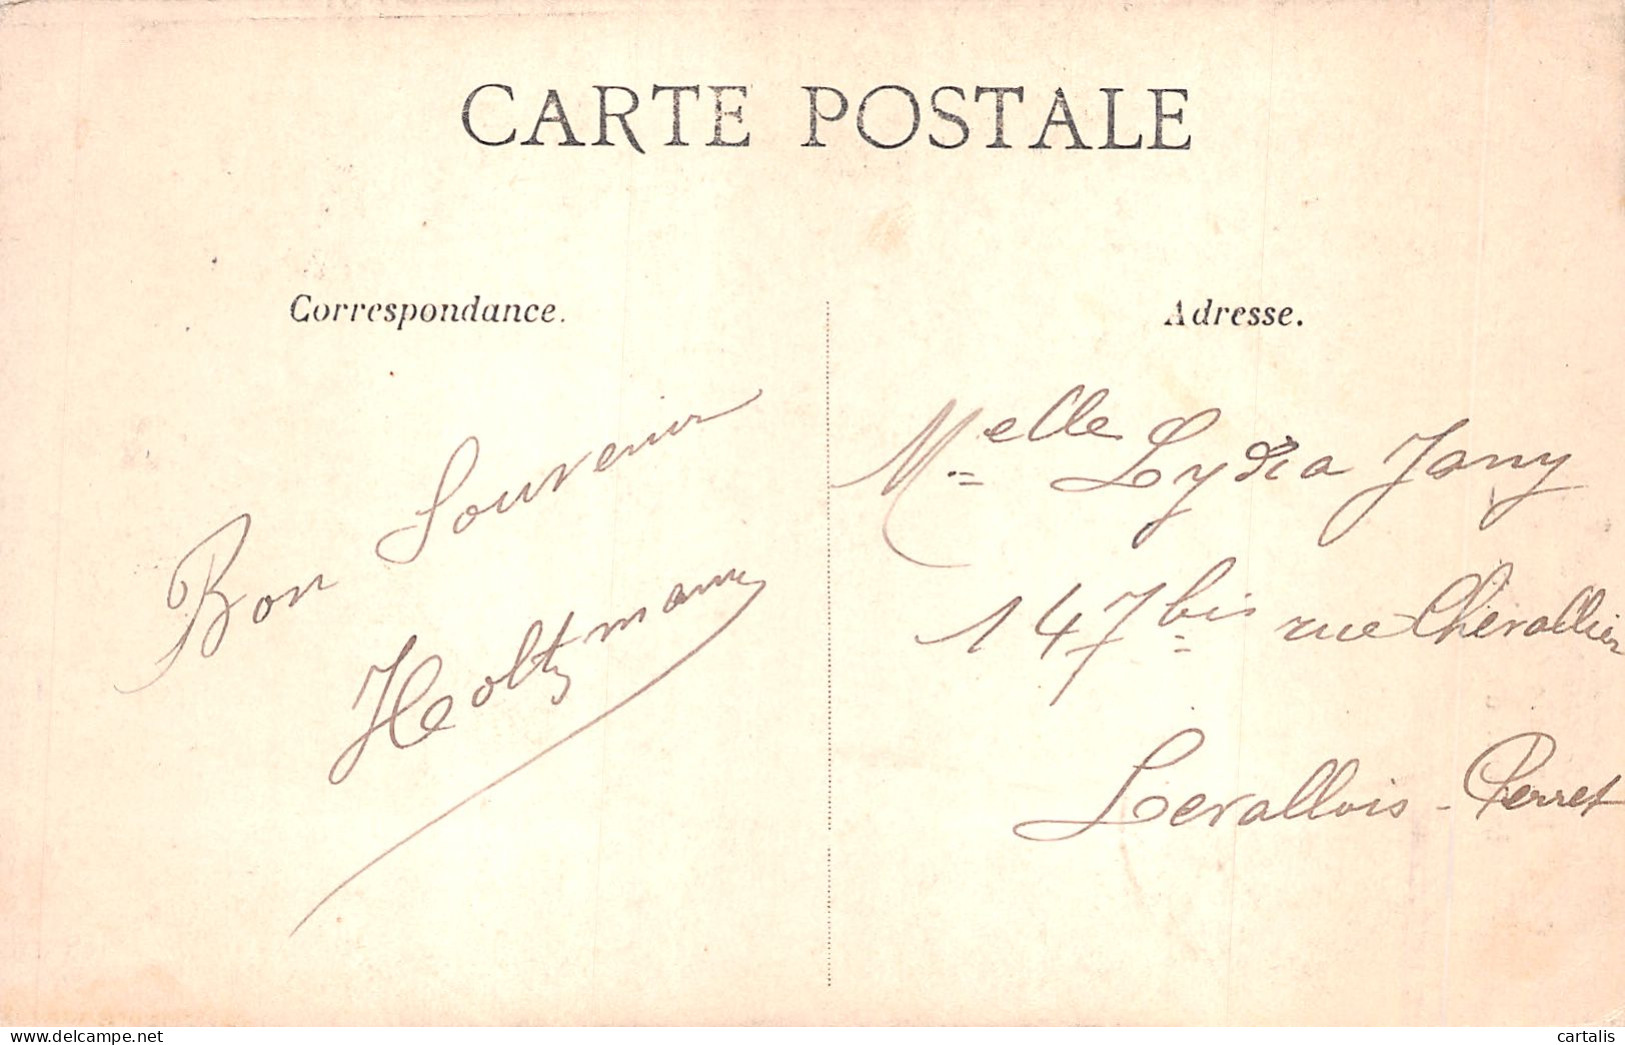 CARTE POSTALE
Correspondance.
Bon Souvenir
Holtzmann
Adresse.
Melle Lydia Jany
147 bis rue Chevallier
Levallois-Perret
delcampe.net
cartalis